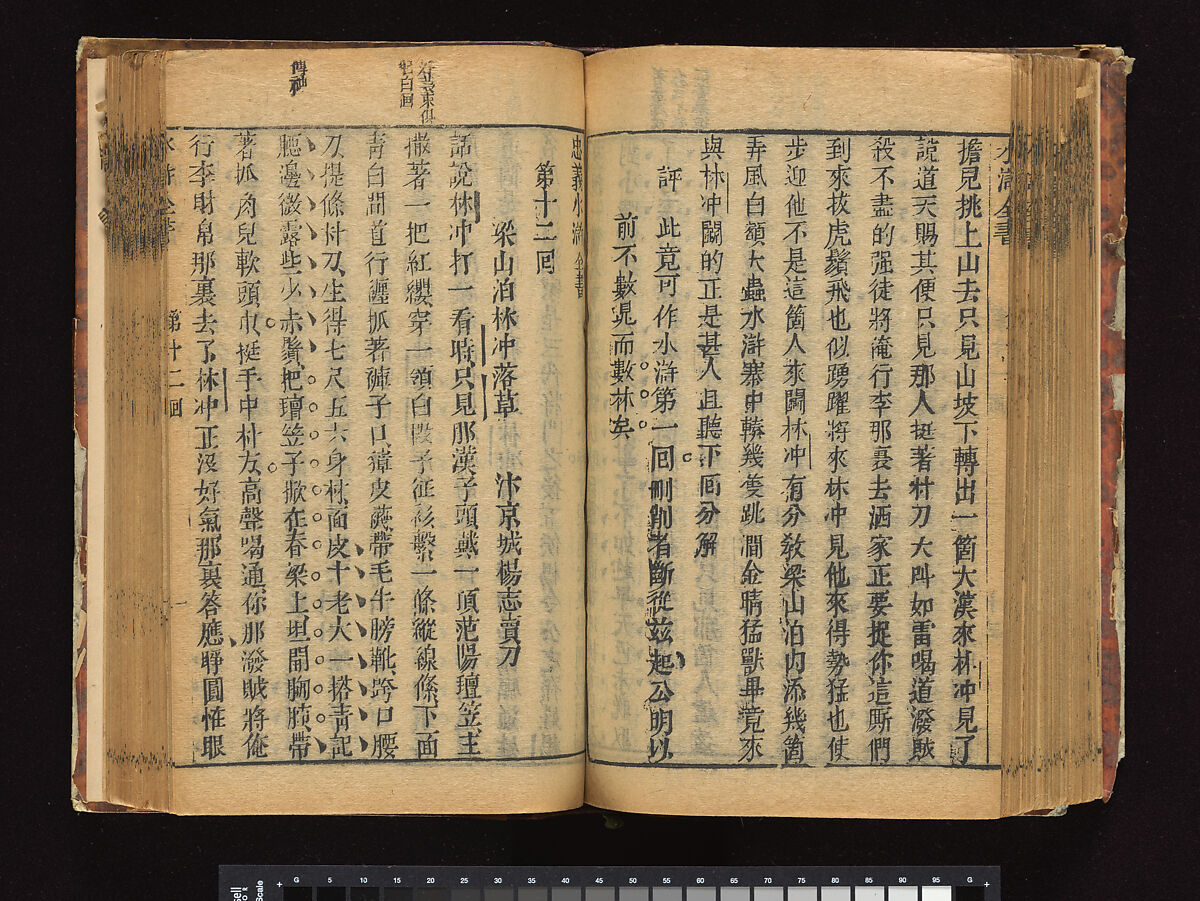 水滸全書
擔兒挑上山去只見山坡下轉出一箇大漢來林冲見了
說道天賜其便只見那人挺著朴刀大叫如雷喝道潑賊
殺不盡的强徒將俺行李那裏去洒家正要捉你這厮們
到來拔虎鬚飛也似踴躍將來林冲見他來得勢猛也使
步迎他不是這箇人來鬭林冲有分敎梁山泊内添幾箇
弄風白額大蟲水滸寨中輳幾隻跳澗金睛猛獸畢竟來
與林冲鬭的正是甚人且聽下回分解
評 此竟可作水滸第一回刪削者斷從玆起公明以
前不數晁而數林矣
忠義水滸全書
第十二回
梁山泊林冲落草 汴京城楊志賣刀
話說林冲打一看時只見那漢子頭戴一頂范陽氊笠上
撒著一把紅纓穿一領白段子征衫繫一條縱線絛下面
靑白間道行纏抓著褲子口獐皮襪帶毛牛膀靴跨口腰
刀提條朴刀生得七尺五六身材面皮上老大一搭靑記
腮邊微露些少赤鬚把氊笠子掀在脊梁上坦開胸脯帶
著抓角兒軟頭巾挺手中朴刀高聲喝道你那潑賊將俺
行李財帛那裏去了林冲正沒好氣那裏答應睜圓怪眼
傳神
第十二回
一